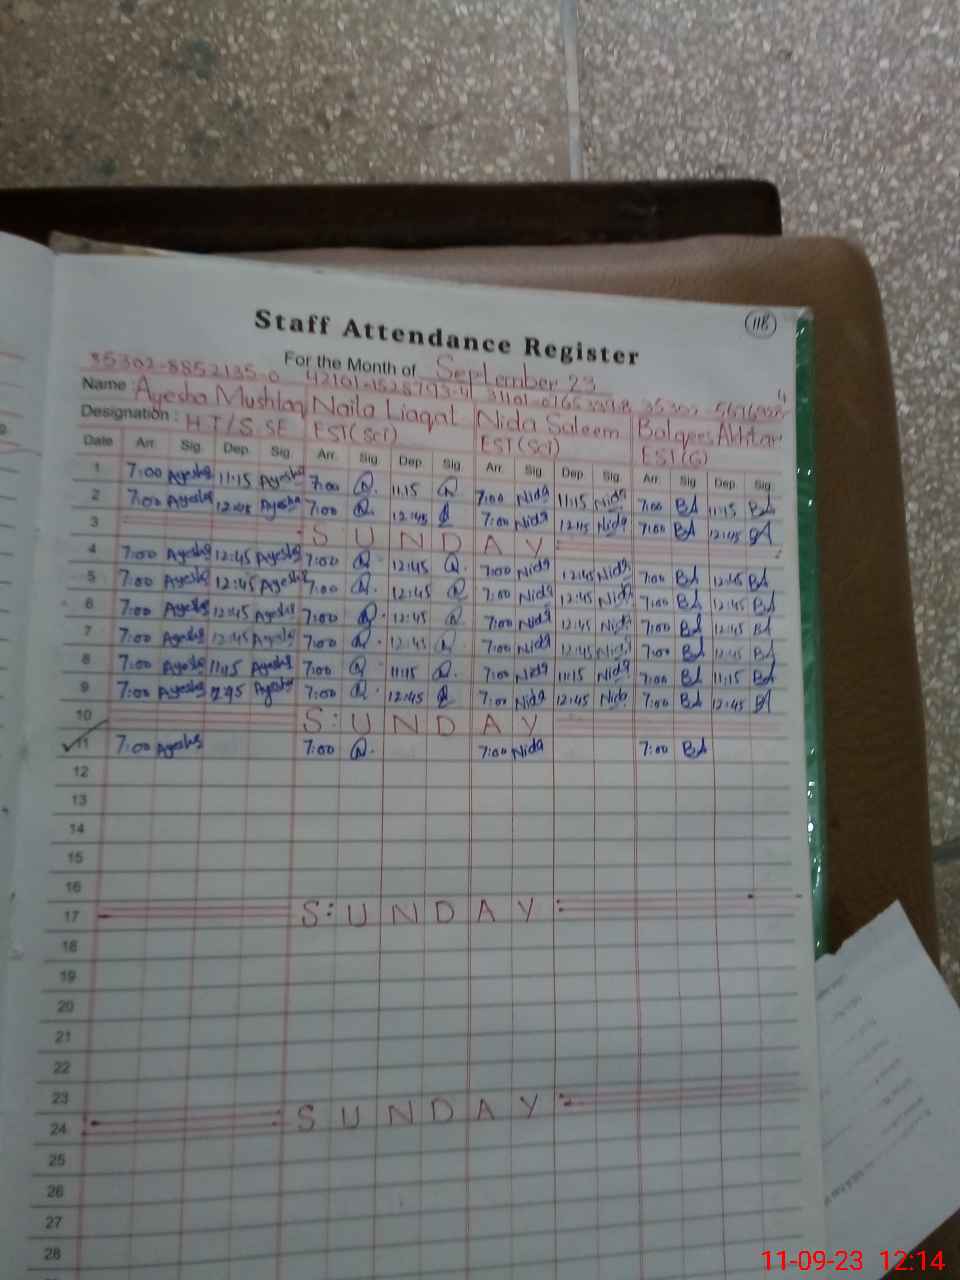 118
Staff Attendance Register
For the Month of September 23
35302-8852135-0 42101-1528793-4
4
Name : Ayesha Mushtaq Naila Liaqat Nida Saleem Balqees Akhtar
Designation : HT/S.SE EST(Sci) EST(Sci) EST(G)
Date Arr. Sig. Dep. Sig. Arr. Sig. Dep. Sig. Arr. Sig. Dep. Sig. Arr. Sig. Dep. Sig.
1 7:00 Ayesha 11:15 Ayesha 7:00 11:15 7:00 Nida 11:15 Nida 7:00 11:15
2 7:00 Ayesha 12:45 Ayesha 7:00 12:45 7:00 Nida 12:45 Nida 7:00 12:45
3 S:UNDAY:
4 7:00 Ayesha 12:45 Ayesha 7:00 12:45 7:00 Nida 12:45 Nida 7:00 12:45
5 7:00 Ayesha 12:45 Ayesha 7:00 12:45 7:00 Nida 12:45 Nida 7:00 12:45
6 7:00 Ayesha 12:45 Ayesha 7:00 12:45 7:00 Nida 12:45 Nida 7:00 12:45
7 7:00 Ayesha 12:45 Ayesha 7:00 12:45 7:00 Nida 12:45 Nida 7:00 12:45
8 7:00 Ayesha 11:15 Ayesha 7:00 11:15 7:00 Nida 11:15 Nida 7:00 11:15
9 7:00 Ayesha Ayesha 7:00 12:45 7:00 Nida 12:45 Nida 7:00 12:45
10 S:UNDAY
11 7:00 Ayesha 7:00 7:00 Nida 7:00
12
13
14
15
16
17 S:UNDAY:
18
19
20
21
22
23
24 SUNDAY:
25
26
27
28
11-09-23 12:14